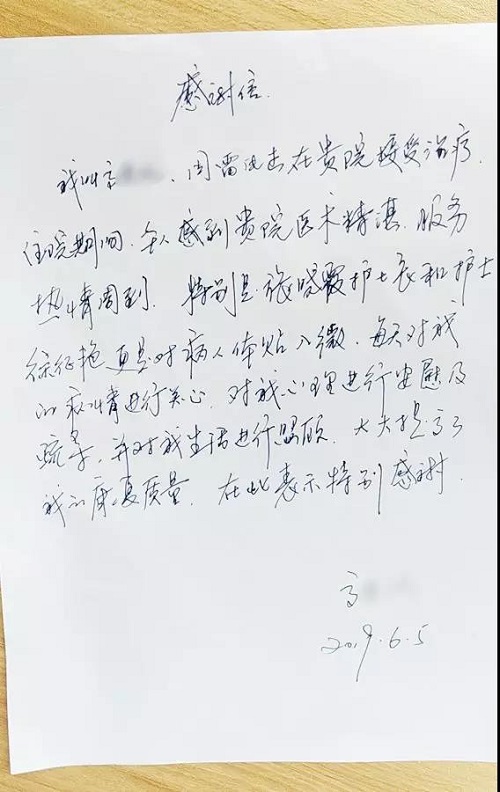 感谢信
我叫高、因雷电击在贵院接受治疗.
住院期间.本人感到贵院医术精湛.服务
热情周到.特别是张晓霞护士长和护士
徐征艳真是对病人体贴入微.每天对我
的病情进行关心.对我心理进行安慰及
疏导,并对我生活进行照顾.大大提高了
我的康复质量.在此表示特别感谢.
高
2019.6.5